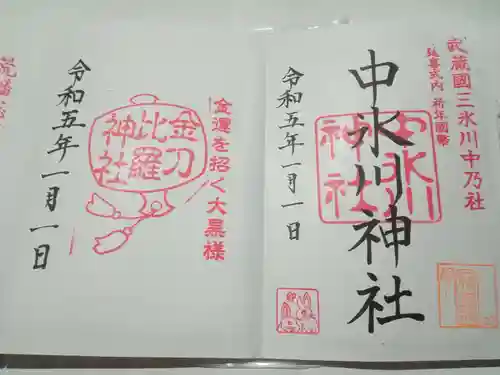 武蔵國三氷川中乃社
延喜式内 祈年國幣
中氷川神社
中氷川
神社
令和五年一月一日
金運を招く大黒様
金刀
比羅
神社
令和五年一月一日